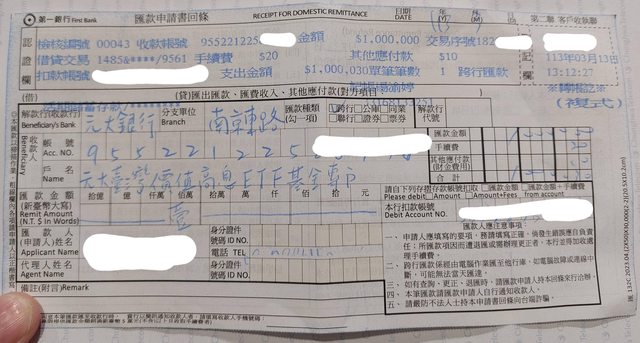 第一銀行 First Bank 匯款申請書回條 RECEIPT FOR DOMESTIC REMITTANCE 日期 DATE (年)(Y) (月)(M) (日)(D) 第二聯 客戶收執聯
認證欄
檢核編號 00043 收款帳號 955221225 金額 $1,000,000 交易序號182
借貸交易 1485&****/9561 手續費 $20 其他應付款 $10 113年03月13日
扣款帳號 支出金額 $1,000,030 單筆筆數 1 跨行匯款 13:12:27
(借) (貸)匯出匯款、匯費收入、其他應付款(對方項目) ※轉帳訖※
(複式)
解款(付款)行 Beneficiary's Bank 元大銀行 分支單位 Branch 南京東路 匯款種類(勾一項) 跨行 公庫 同業 聯行 證券 票券 解款行代號
收款人 Beneficiary
帳號 Acc. NO. 955221225
匯款金額
手續費 20
其他應付款(財金費用)
合計
戶名 Name 元大臺灣價值高息ETF基金專戶
匯款金額 (新臺幣大寫) Remit Amount (N.T. $ In Words) 拾億 億 仟萬 佰萬 拾萬 萬 仟 佰 拾 元
壹
請自下列存摺存款帳號扣取 匯款金額 匯款金額+手續費
Please debit Amount Amount+Fees from account.
本行扣款帳號 Debit Account NO.
匯款人 (申請人)姓名 Applicant Name
身分證件號碼 ID NO.
電話 TEL
代理人姓名 Agent Name
身分證件號碼 ID NO.
備註(附言)Remark
匯款人應注意事項：
一、申請人應填寫的要項，務請填寫正確，倘發生錯誤應自負責任；所匯款項因而遭退匯或需辦理更正者，本行並得加收處理手續費。
二、跨行匯款係經由電腦作業匯至他行庫，如電腦故障或連線中斷，可能無法當天匯達。
三、如有查詢、更正、退匯時，請匯款申請人持本回條來行洽辦。
四、本筆匯款請匯款申請人自行通知收款人。
五、請嚴防不法人士持本申請書回條向台端詐騙。